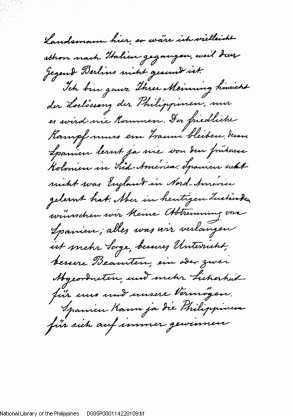 Landsmann hier, er wäre ich vielleicht
schon nach Italien gegangen, weil diese
Gegend Berlins nicht gesund ist.
Ich bin ganz Ihrer Meinung hinsicht
der Loslösung der Philippinen, nur
es wird nie kommen. Der friedliche
Kampf muss ein Traum bleiben, denn
Spanien lernt ja nie von den früheren
Kolonien in Süd-América. Spanien sieht
nicht was England in Nord-América
gelernt hat. Aber in heutigen Zuständen
wünschen wir keine Abtrennung von
Spanien; alles was wir verlangen
ist mehr Sorge, besseres Unterricht,
bessere Beamten, ein oder zwei
Abgeordneten, und mehr Sicherheit
für uns und unsere Vermögen.
Spanien kann ja die Philippinen
für sich auf immer gewinnen
National Library of the Philippines D695P000114220109.tif